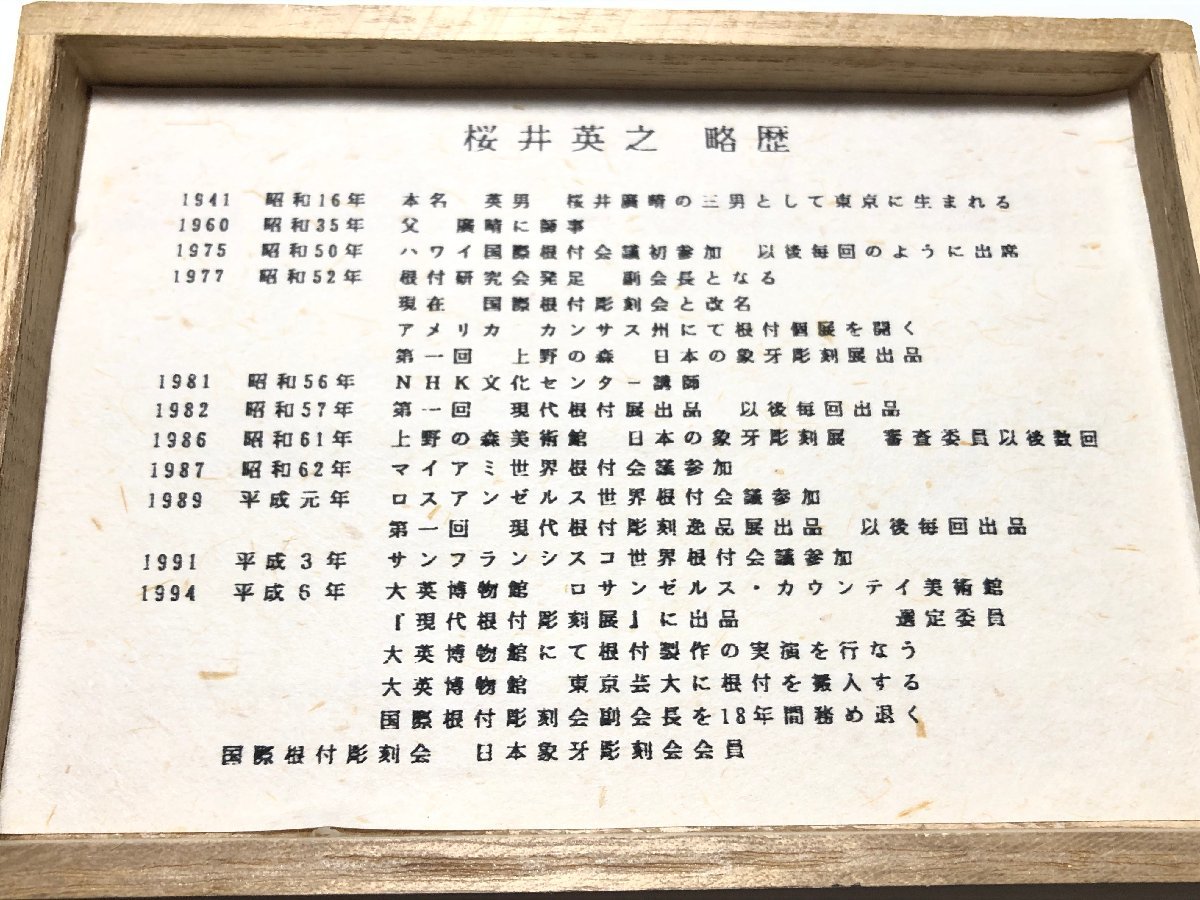 桜井英之 略歴
1941 昭和16年 本名 英男 桜井廣晴の三男として東京に生まれる
1960 昭和35年 父 廣晴に師事
1975 昭和50年 ハワイ国際根付会議初参加 以後毎回のように出席
1977 昭和52年 根付研究会発足 副会長となる
現在 国際根付彫刻会と改名
アメリカ カンサス州にて根付個展を開く
第一回 上野の森 日本の象牙彫刻展出品
1981 昭和56年 NHK文化センター講師
1982 昭和57年 第一回 現代根付展出品 以後毎回出品
1986 昭和61年 上野の森美術館 日本の象牙彫刻展 審査委員以後数回
1987 昭和62年 マイアミ世界根付会議参加
1989 平成元年 ロスアンゼルス世界根付会議参加
第一回 現代根付彫刻逸品展出品 以後毎回出品
1991 平成3年 サンフランシスコ世界根付会議参加
1994 平成6年 大英博物館 ロサンゼルス・カウンテイ美術館
『現代根付彫刻展』に出品 選定委員
大英博物館にて根付製作の実演を行なう
大英博物館 東京芸大に根付を搬入する
国際根付彫刻会副会長を18年間務め退く
国際根付彫刻会 日本象牙彫刻会会員